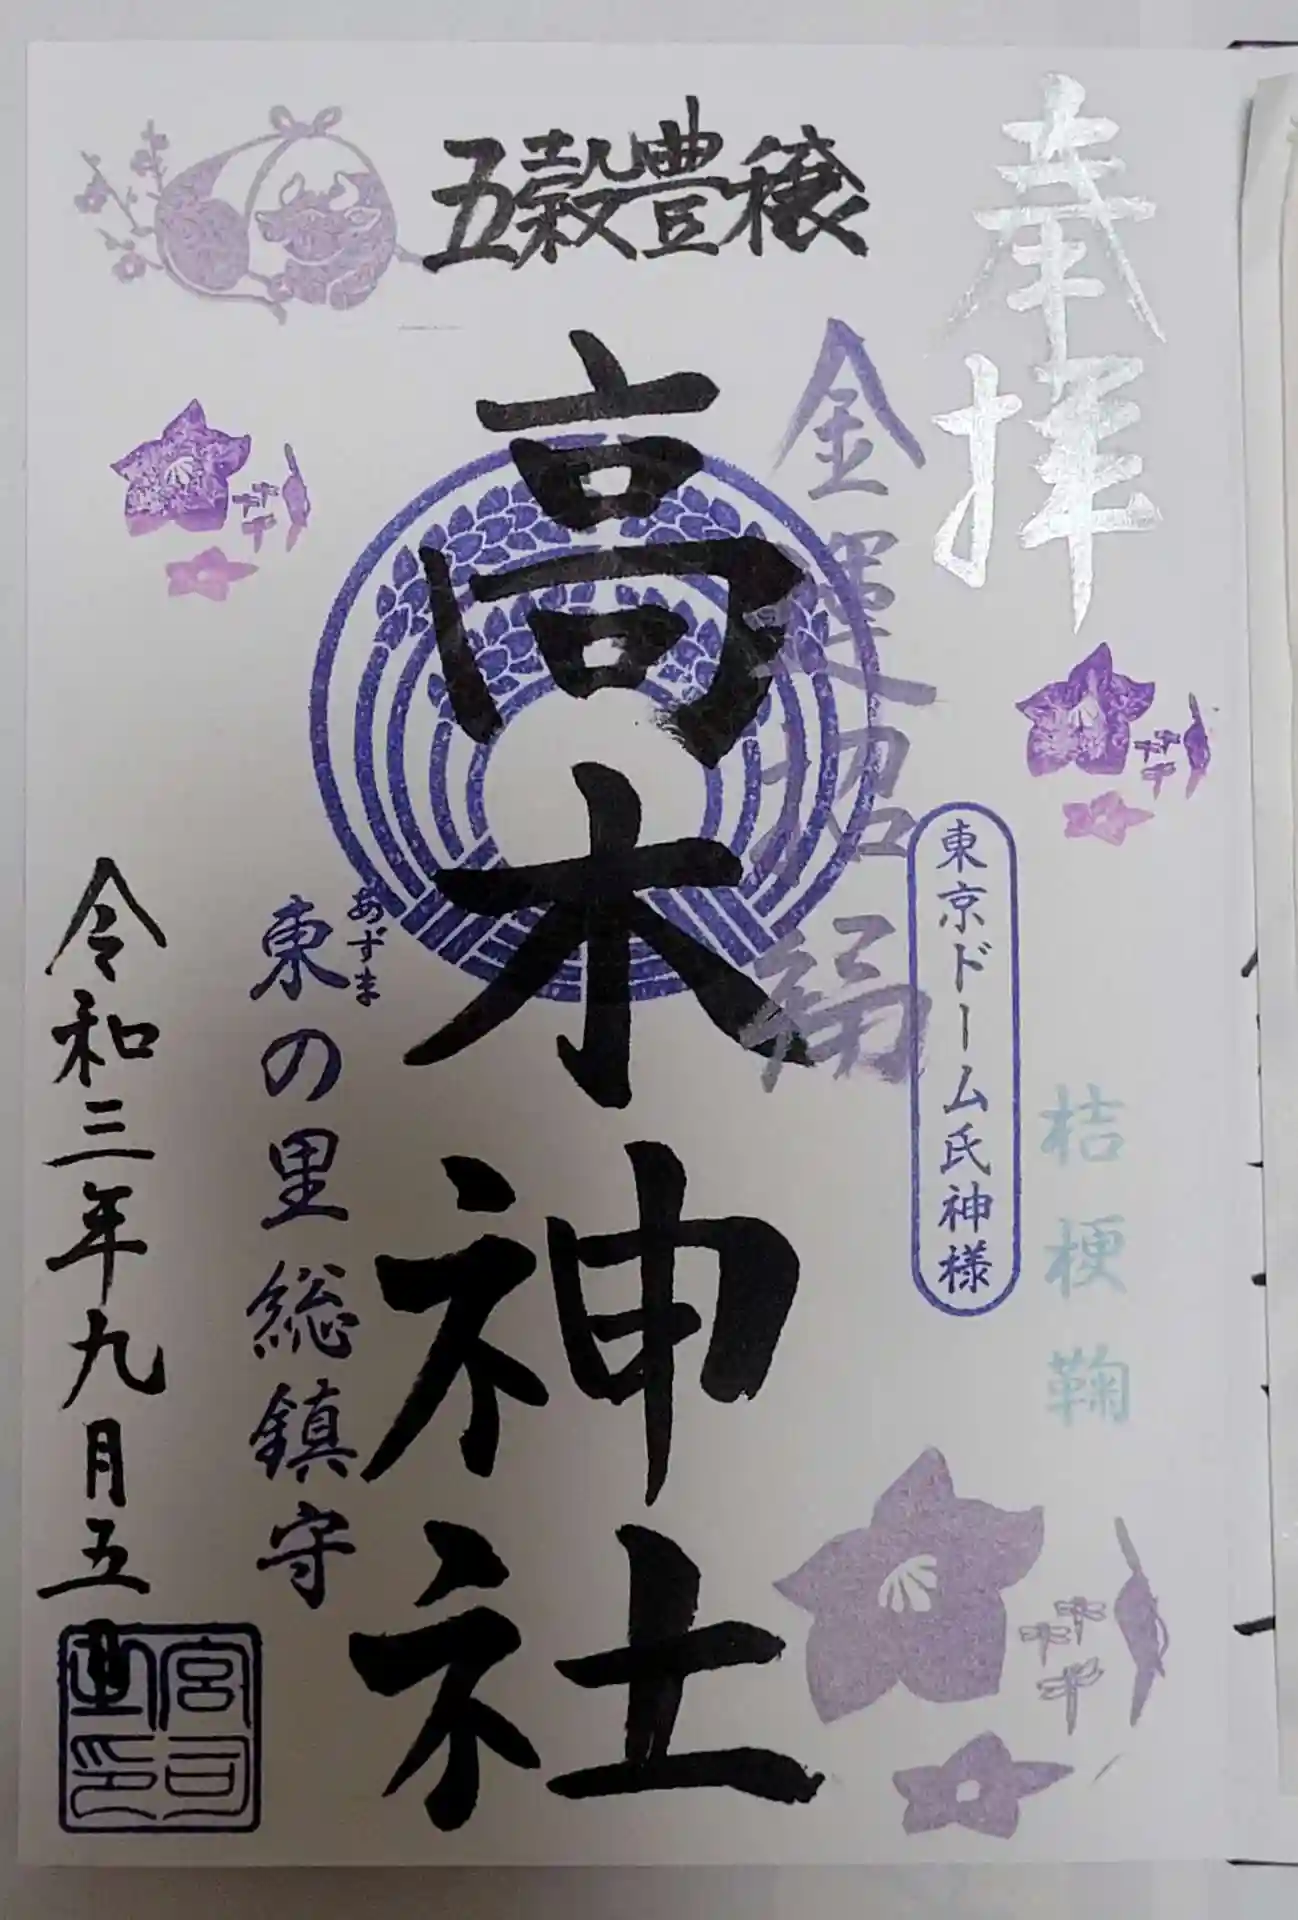 奉拝
桔梗鞠
東京ドーム氏神様
金運招福
五穀豊穣
高木神社
あずま
東の里総鎮守
令和三年九月五日
宮司
之印